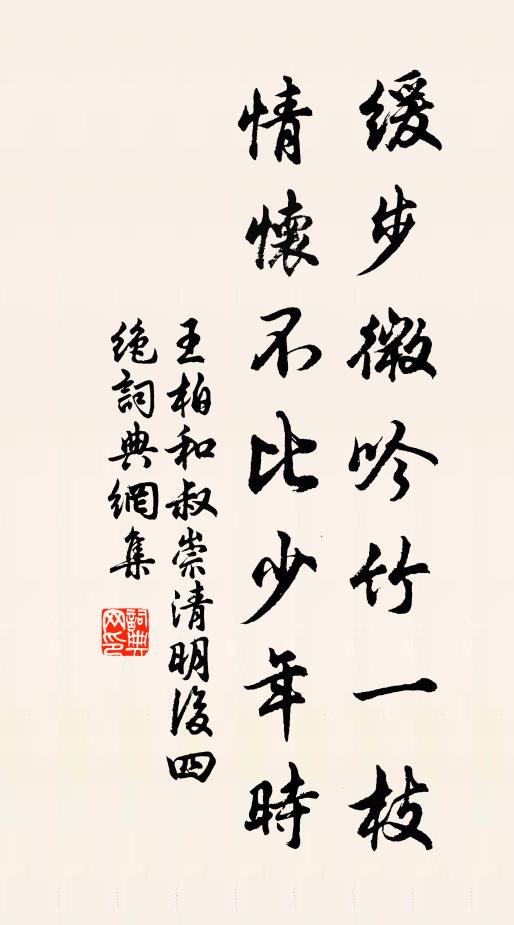 緩步微吟竹一枝
情懷不比少年時
王柏和叔崇清明後四
絶詞典網集
詞典網印